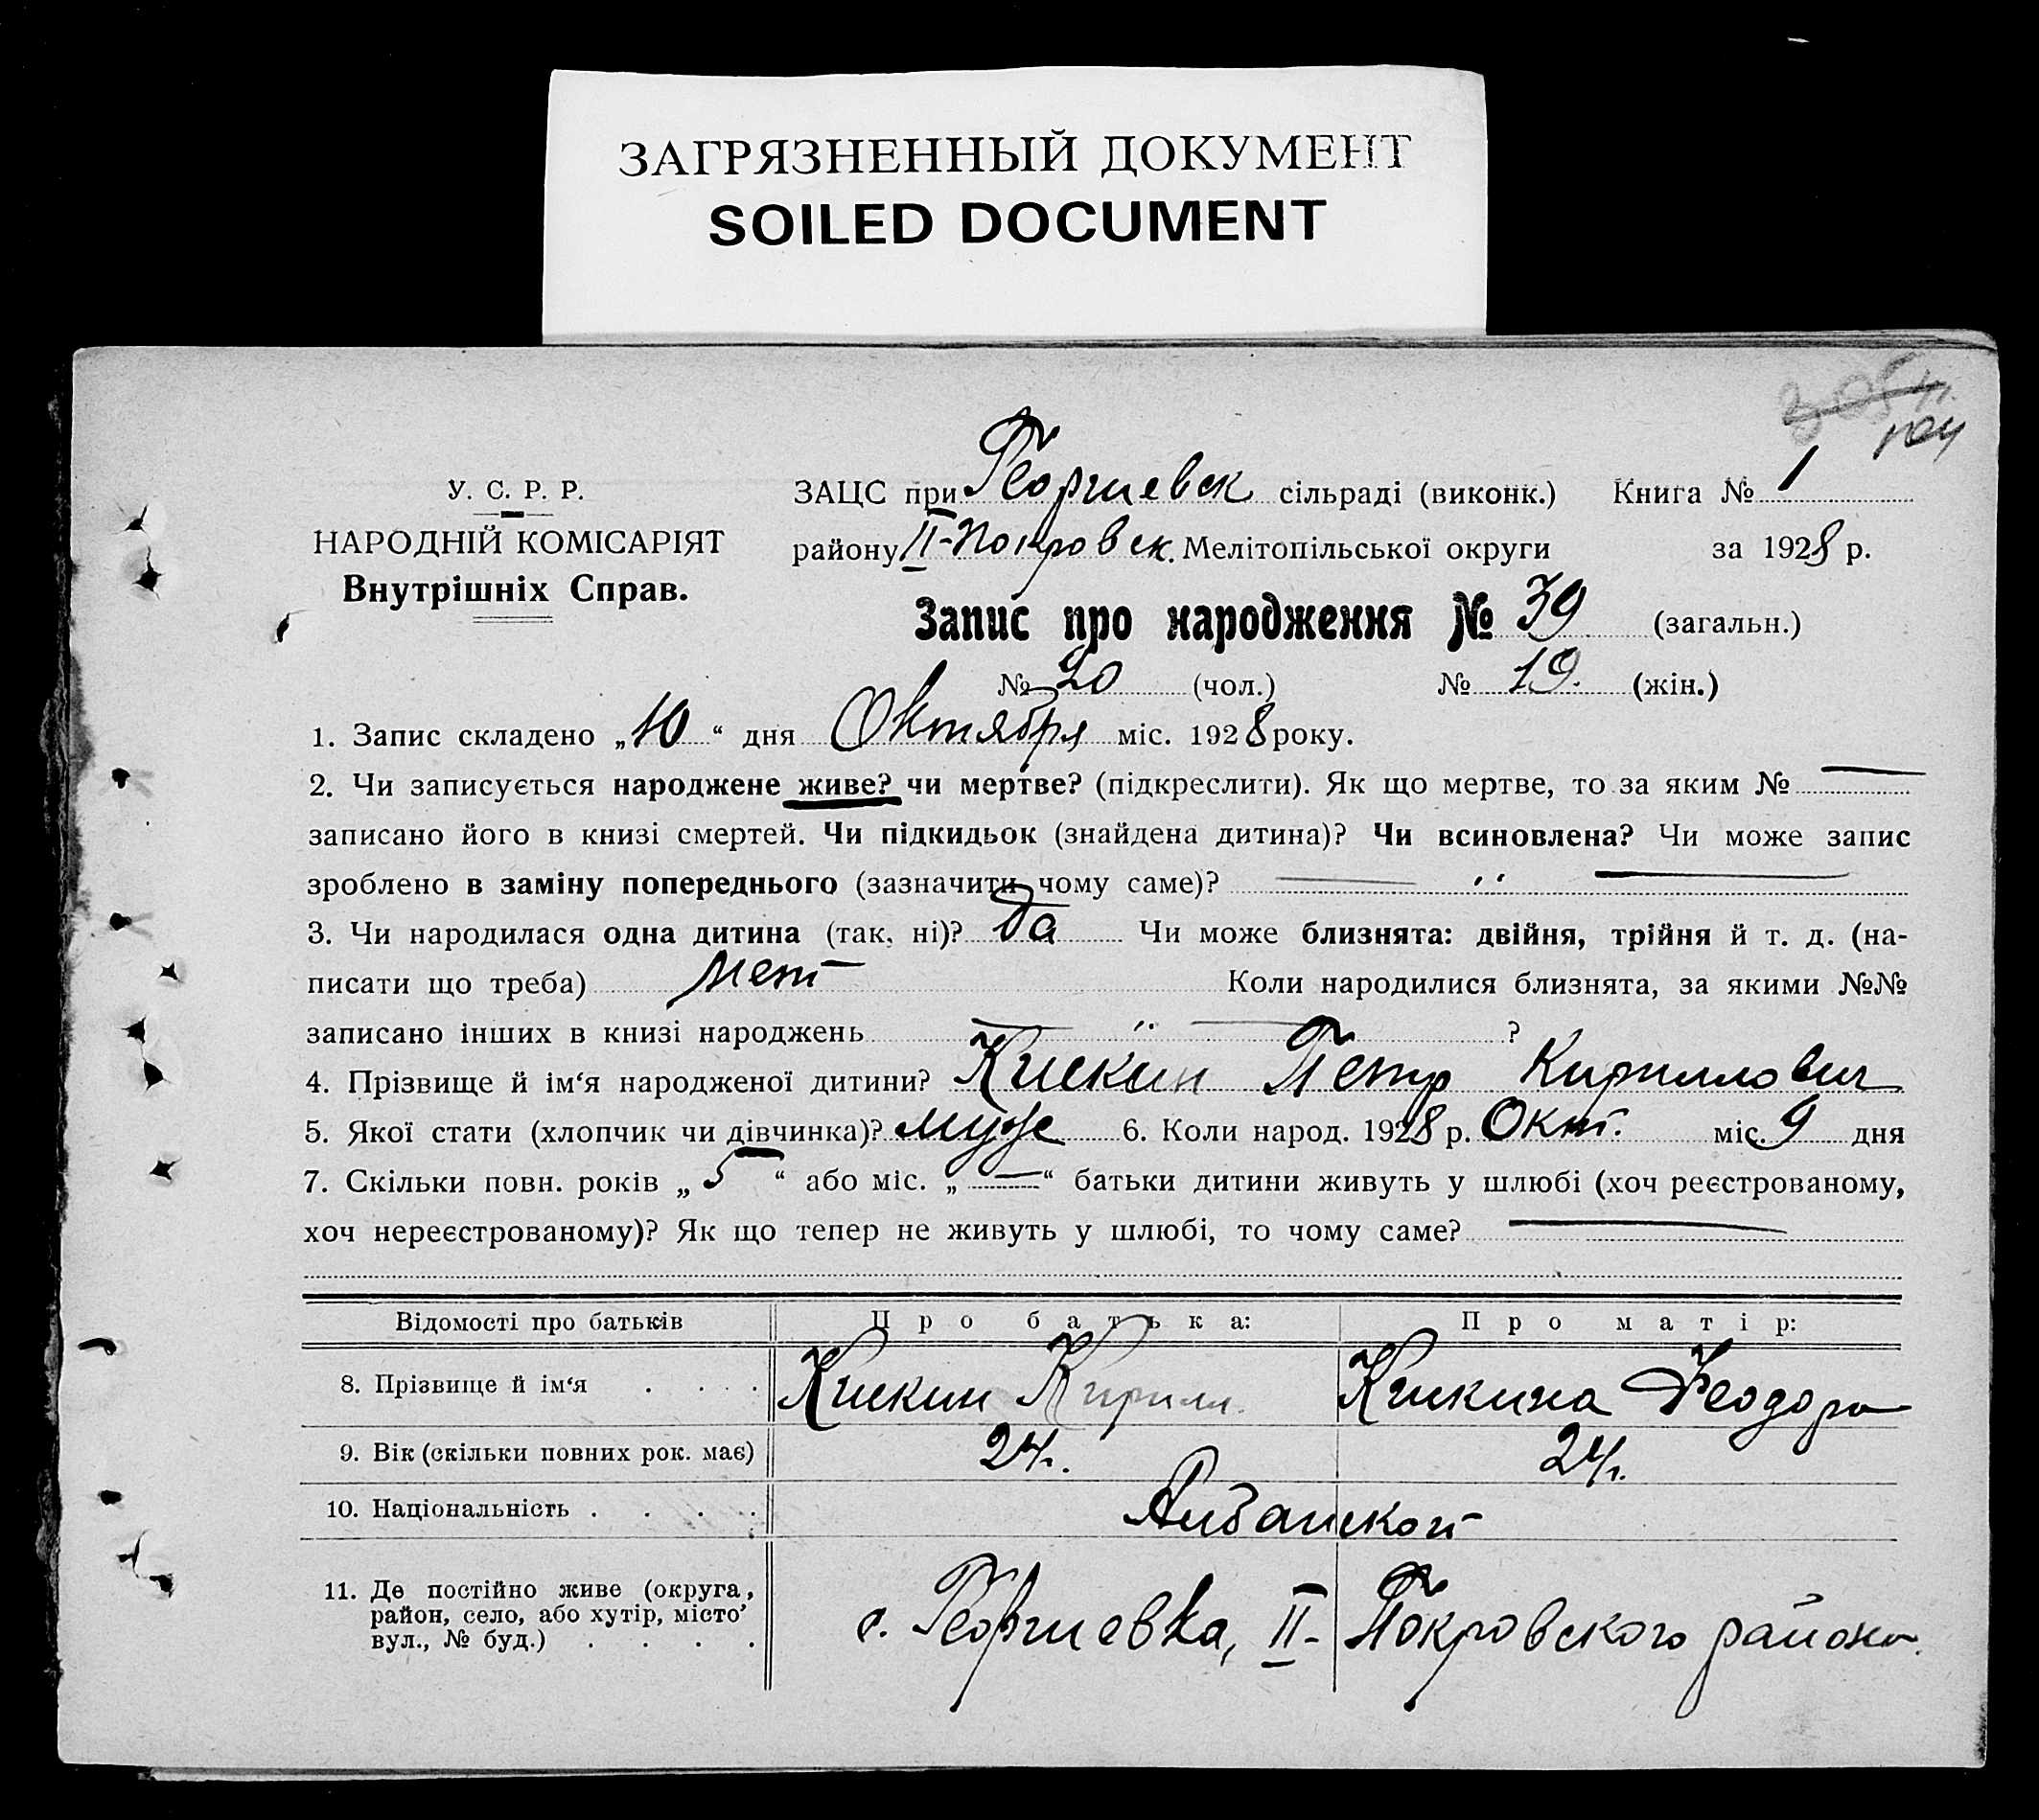 ЗАГРЯЗНЕННЫЙ ДОКУМЕНТ
SOILED DOCUMENT
104
У. С. Р. Р.
НАРОДНІЙ КОМІСАРІЯТ
Внутрішніх Справ.
ЗАЦС при Георгиевск сільраді (виконк.) Книга № 1
району II-Покровск. Мелітопільської округи за 1928 р.
Запис про народження № 39 (загальн.)
№ 20 (чол.) № 19. (жін.)
1. Запис складено „10“ дня Октября міс. 1928 року.
2. Чи записується народжене живе? чи мертве? (підкреслити). Як що мертве, то за яким № —
записано його в книзі смертей. Чи підкидьок (знайдена дитина)? Чи всиновлена? Чи може запис
зроблено в заміну попереднього (зазначити чому саме)? — „ —
3. Чи народилася одна дитина (так, ні)? Да Чи може близнята: двійня, трійня й т. д. (на-
писати що треба) Нет Коли народилися близнята, за якими №№
записано інших в книзі народжень — „ — ?
4. Прізвище й ім‘я народженої дитини? Кискин Петр Кириллович
5. Якої стати (хлопчик чи дівчинка)? муж 6. Коли народ. 1928 р. Окт. міс. 9 дня
7. Скільки повн. років „5“ або міс. „—“ батьки дитини живуть у шлюбі (хоч реєстрованому,
хоч нереєстрованому)? Як що тепер не живуть у шлюбі, то чому саме? —
Відомості про батьків Про батька: Про матір:
8. Прізвище й ім‘я . . . . Кискин Кирилл. Кискина Феодора
9. Вік (скільки повних рок. має) 24г. 24г.
10. Національність . . . . Албанской
11. Де постійно живе (округа,
район, село, або хутір, місто,
вул., № буд.) . . . .
с. Георгиевка, II-Покровского района.